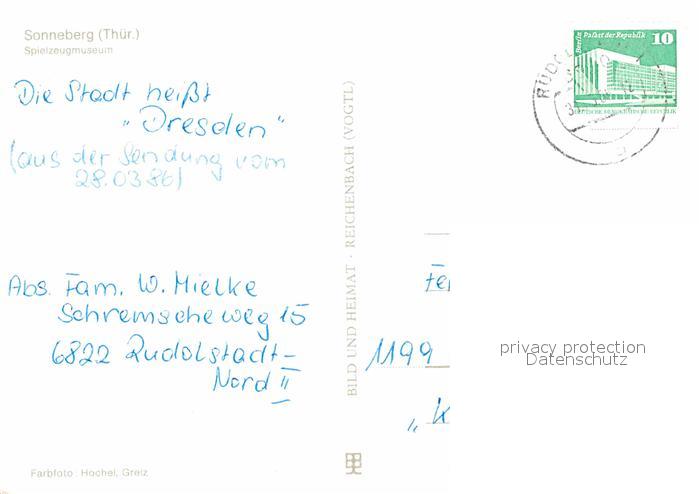 Sonneberg (Thür.)
Spielzeugmuseum
Die Stadt heißt
"Dresden"
(aus der Sendung vom
28.03.86)
Abs. Fam. W. Mielke
Schremscheweg 15
6822 Rudolstadt-
Nord II
Farbfoto: Höchel, Greiz
BILD UND HEIMAT · REICHENBACH (VOGTL)
Berlin Palast der Republik
10
DEUTSCHE DEMOKRATISCHE REPUBLIK
1199
privacy protection
Datenschutz